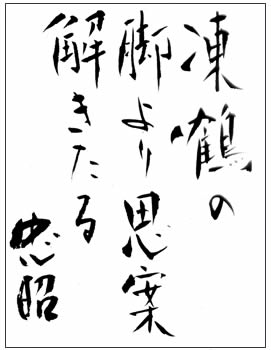 凍鶴の
脚より思案
解きたる
忠昭